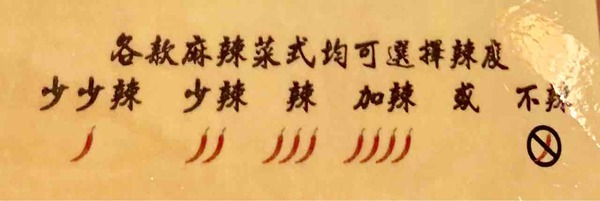 各款麻辣菜式均可選擇辣度
少少辣 少辣 辣 加辣 或 不辣